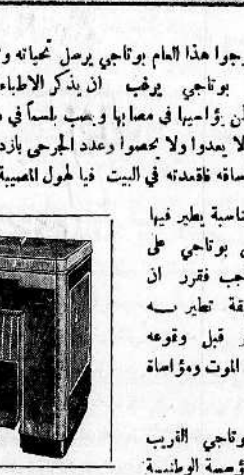 رجوا هذا العام بوتاجي يرسل تحياته و
بوتاجي يرغب ان يذكر الاطباء
ان يؤاسيها في مصابها ويصب بلسماً في
لا يعدوا ولا يحصوا وعدد الجرحى بازد
ساقه فاقعدته في البيت فيا لهول المصيبة
ناسبة يطير فيها
بوتاجي على
جب فقرر ان
قة تطير به
ر قبل وقوعه
الموت ومؤاساة
وتاجي القريب
ؤسسة الوطنية